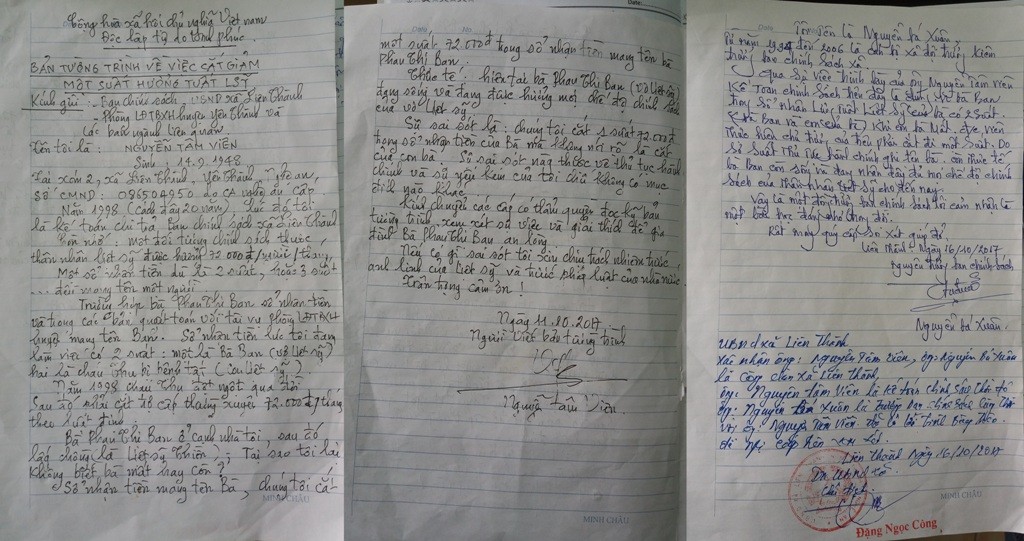 Cộng hòa xã hội chủ nghĩa Việt nam
Độc lập tự do hạnh phúc
BẢN TƯỜNG TRÌNH VỀ VIỆC CẮT GIẢM
MỘT SUẤT HƯỞNG TUẤT LSỸ
Kính gửi: - Ban chính sách, UBND xã Liên Thành
- Phòng LĐTBXH huyện Yên Thành và
Các ban ngành liên quan
Tên tôi là: NGUYỄN TÂM VIÊN
Sinh: 14.9.1948
Tại xóm 2, xã Liên Thành, Yên Thành, Nghệ an,
Số CMND: 086504950 do CA nghệ an cấp
Năm 1998 (Cách đây 20 năm) lúc đó tôi
là kế toán chi trả, ban chính sách xã Liên Thành
một đối tượng chính sách
thân nhân liệt sỹ được hưởng 72.000đ/người/tháng,
Một sổ nhận tiền dù là 2 suất, hoặc 3 suất
đều mang tên một người
Trường hợp bà Phan Thị Ban sổ nhận tiền
và trong các bản quyết toán với tài vụ phòng LĐTBXH
huyện mang tên Ban. Sổ nhận tiền lúc tôi đang
làm việc có 2 suất: một là Bà Ban (vợ Liệt sỹ)
hai là cháu Thu bị bệnh tật (con Liệt sỹ)
Năm 1998 cháu Thu đột ngột qua đời
Sau đó phải cắt trợ cấp thường xuyên 72.000đ/tháng
theo quy định.
Bà Phan Thị Ban ở cạnh nhà tôi, sau đó
chồng là Liệt sỹ Thiên; Tại sao tôi lại
không biết bà mất hay còn?
Sổ nhận tiền mang tên Bà, chúng tôi cắt
MINH CHÂU
Date
một suất 72.000đ trong sổ nhận tiền mang tên bà
Phan Thị Ban.
Thực tế: hiện tại bà Phan Thị Ban (vợ Liệt sỹ)
đang sống và đang được hưởng mọi chế độ chính sách
của vợ Liệt sỹ.
Sự sai sót là: chúng tôi cắt 1 suất 72.000đ
trong sổ nhận tiền của Bà mà không nói rõ là cắt
của con bà. Sự sai sót này thuộc về thủ tục hành
chính và sự yếu kém của tôi chứ không có mục
đích nào khác.
Kính chuyển các cấp có thẩm quyền đọc kỹ bản
tường trình, xem xét sự việc và giải thích để gia
đình Bà Phan Thị Ban an lòng.
Nếu có gì sai sót tôi xin chịu trách nhiệm trước
anh linh của Liệt sỹ và trước pháp luật của nhà nước.
Trân trọng cảm ơn!
Ngày 11.10.2017
Người viết bản tường trình
Nguyễn tâm Viên
MINH CHÂU
Date
Tên tôi là Nguyễn bá Xuân
Từ năm 1994 đến 2006 là cán bộ xã đã thủy kiêm
trưởng ban chính sách xã.
Qua sự việc trình bày của ông Nguyễn Tâm Viên
Kế Toán chính sách trên đây là đúng sự bà Ban
trong sổ nhận Lúc tuất Liệt sỹ có 2 Suất.
(bà Ban và em con bà) Khi em bà Mất
thực hiện chi trả, của tiêu phải cắt đi một Suất. Do
Sơ Suất Thủ tục hành chính ghi tên bà. còn thực tế
bà ban còn sống và đang nhận đầy đủ mọi chế độ chính
Sách của Thân nhân Liệt Sỹ cho đến nay.
Vậy là một đồng chí ban chính sách tôi cảm nhận là
một bài học đáng
Rất mong quý cấp xem xét giúp đỡ.
Liên Thành Ngày 16/10/2017
Nguyên trưởng ban chính sách
Nguyễn bá Xuân.
UBND xã Liên Thành
Xác nhận ông: Nguyễn Tâm Viên, ông: Nguyễn Bá Xuân
là công dân xã Liên Thành,
ông: Nguyễn tâm Viên là kế toán chính sách
ông: Nguyễn Xuân là trưởng ban chính sách
và ông: Nguyễn Tâm Viên
đề nghị cấp trên xem xét.
Liên Thành Ngày 16/10/2017
TM UBND xã
Chủ tịch
Đặng Ngọc Công